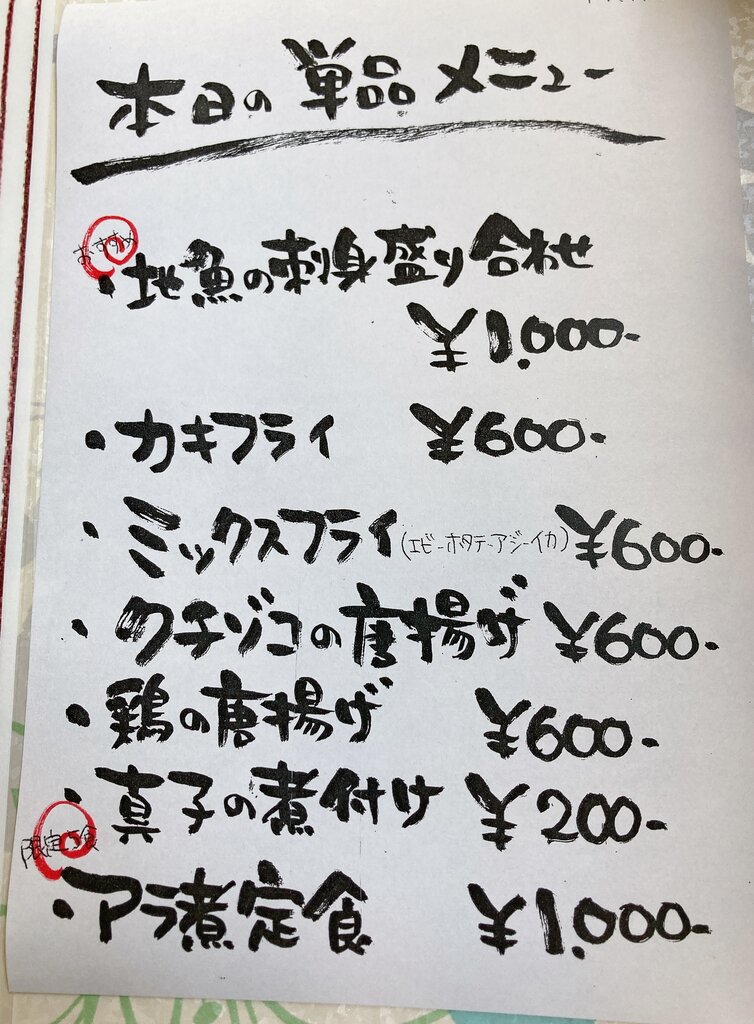 本日の単品メニュー
おすすめ
・地魚の刺身盛り合わせ
¥1.000-
・カキフライ ¥600-
・ミックスフライ(エビ-ホタテ-アジ-イカ) ¥600-
・クチゾコの唐揚げ ¥600-
・鶏の唐揚げ ¥600-
・真子の煮付け ¥200-
限定5食
・アラ煮定食 ¥1.000-